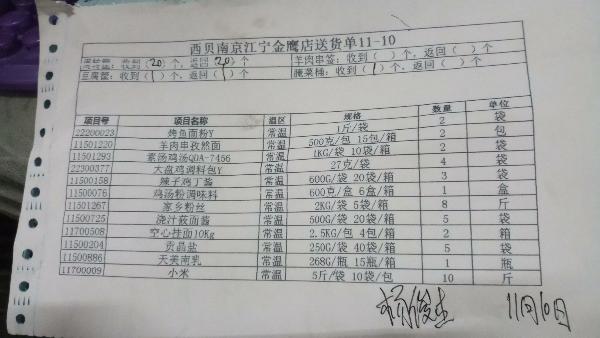 西贝南京江宁金鹰店送货单11-10
周转筐：收到（20）个，返回（20）个 羊肉串签：收到（ ）个，返回（ ）个
豆腐筐：收到（ ）个，返回（ ）个 腌菜桶：收到（ ）个，返回（ ）个
项目号 项目名称 温区 规格 数量 单位
22200023 烤鱼面粉Y 常温 1斤/袋 2 袋
11501220 羊肉串孜然面 常温 500克/包 15包/箱 2 包
11501293 素汤鸡汤QDA-7456 常温 1KG/袋 10袋/箱 2 袋
22300377 大盘鸡调料包Y 常温 27克/袋 4 袋
11500158 辣子鸡丁酱 常温 600G/袋 20袋/箱 3 袋
11500076 鸡汤粉调味料 常温 600克/盒 6盒/箱 1 盒
11501267 家乡粉丝 常温 2KG/袋 5袋/箱 8 斤
11500725 浇汁莜面酱 常温 500G/袋 20袋/箱 5 袋
11700508 空心挂面10Kg 常温 2.5KG/包 4包/箱 2 箱
11500204 贡晶盐 常温 250G/袋 40袋/箱 5 袋
11500886 天美南乳 常温 268G/瓶 15瓶/箱 1 瓶
11700009 小米 常温 5斤/袋 10袋/包 10 斤
11月10日